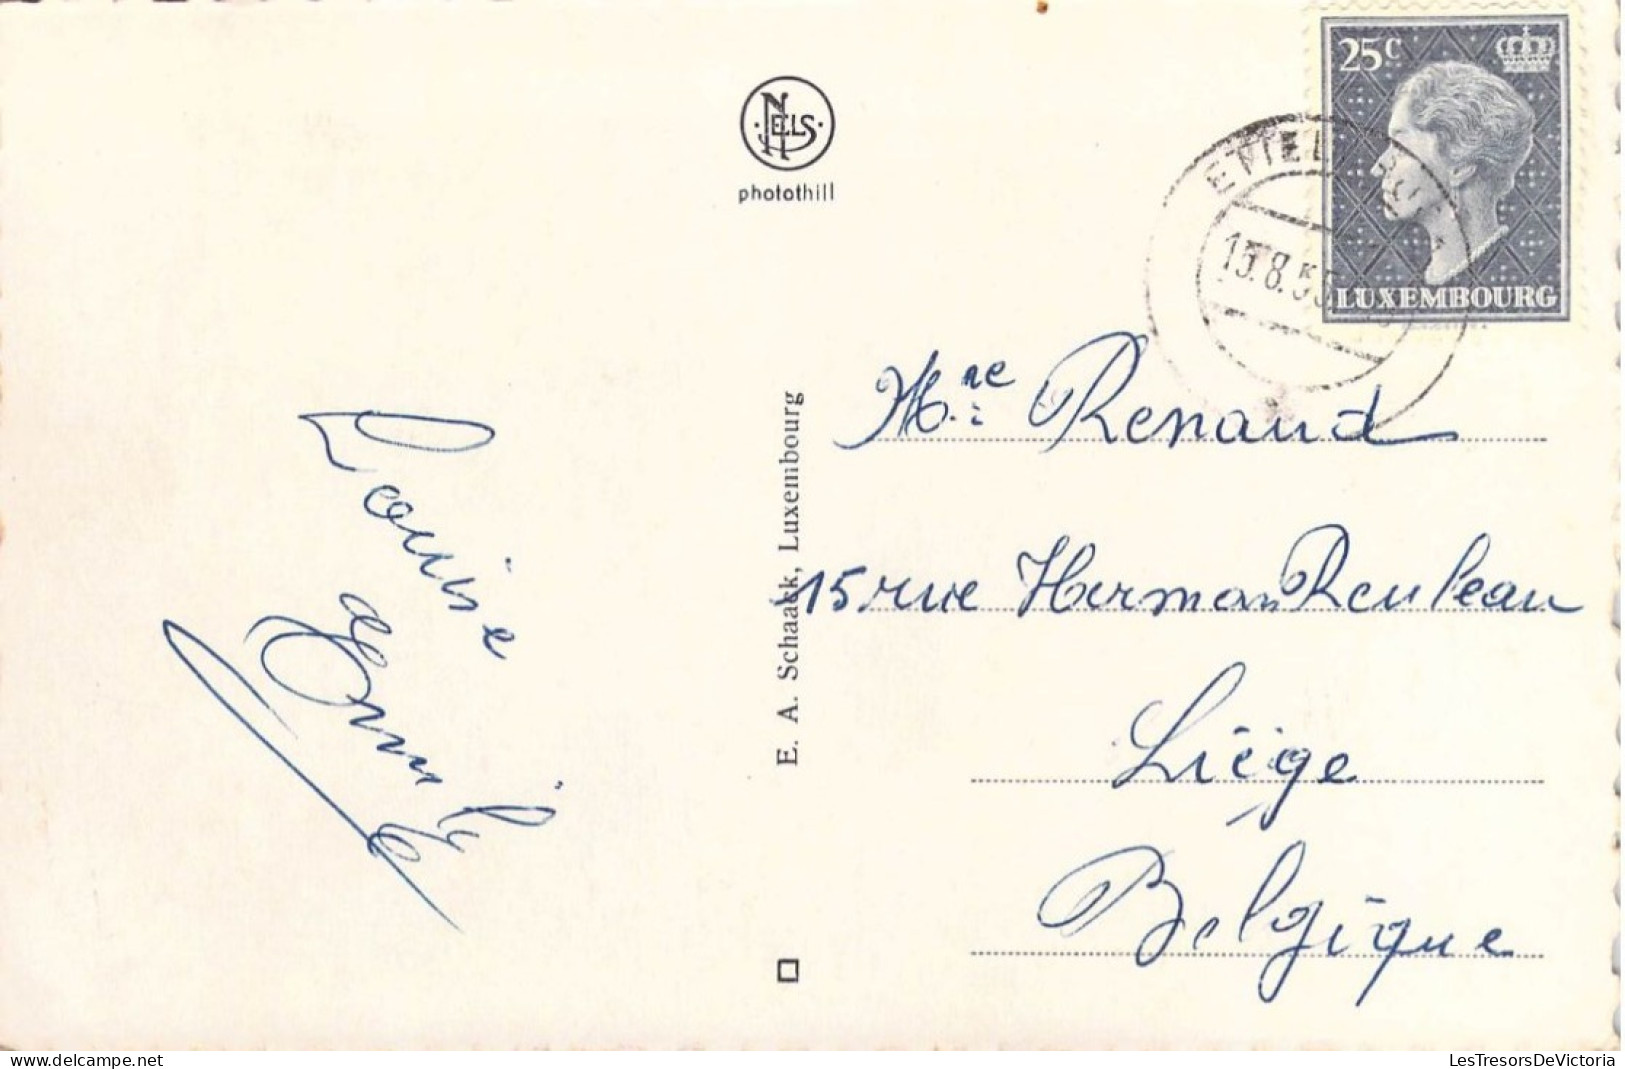 25c
LUXEMBOURG
NELS
photothill
ETTELBRUCK
15.8.55
E. A. Schaack, Luxembourg
Louise
et Emile
Mme Renand
15 rue Herman Reuleau
Liège
Belgique
LesTresorsDeVictoria
delcampe.net